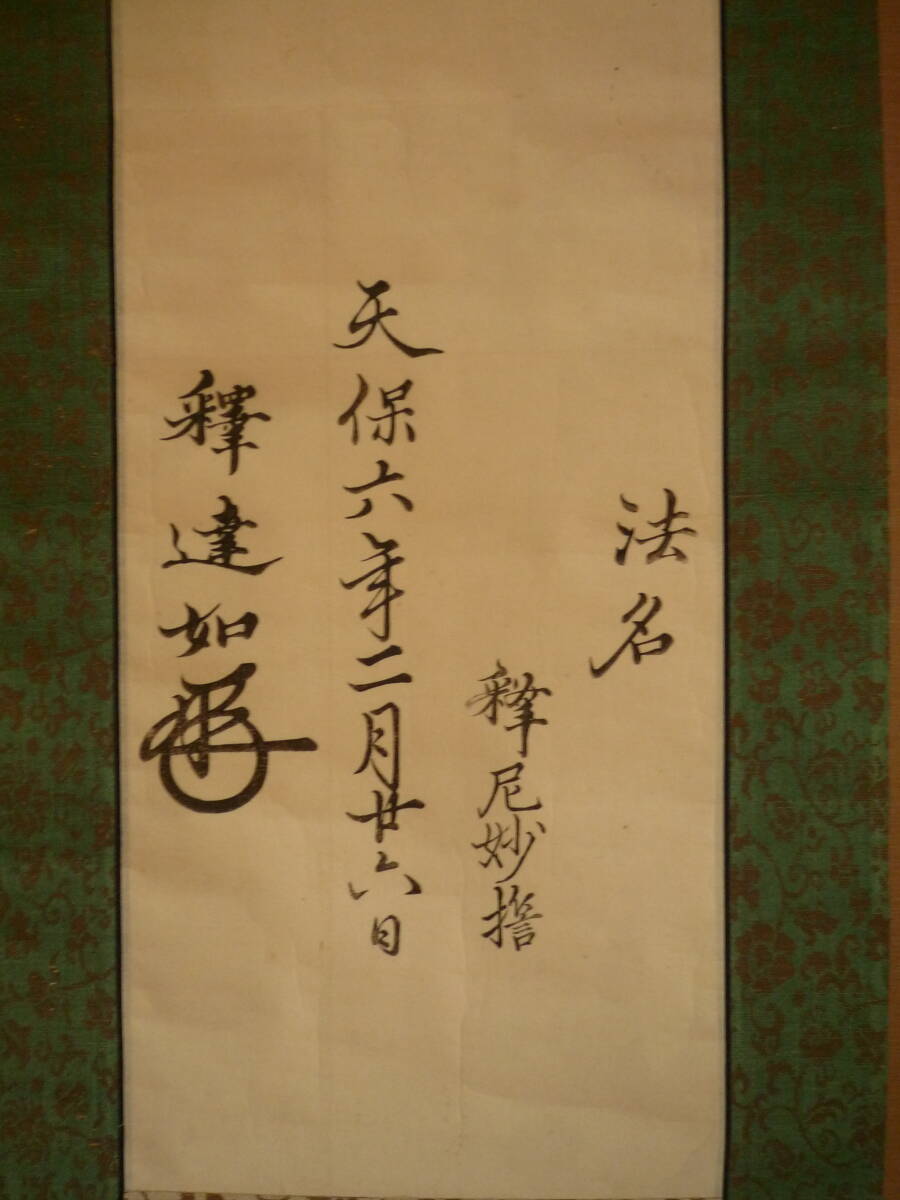 法名
釋尼妙誓
天保六年二月廿六日
釋達如